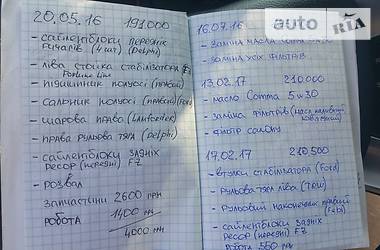 20.05.16 191.000
- сайлентблоки передніх
ричагів (4 шт) (Delphi)
- ліва стойка стабілізатора
- підшипник полуосі (правий)
- сальник полуосі (правий) (Ford)
- шарова права (Lemforder)
- права рульова тяга (Delphi)
- сайлентблоки задніх
ресор (передні) FZ
- розвал
запчастини 2600 грн
робота 1400 грн
4000 грн
16.07.16
- заміна масла
- заміна усіх фільтрів
13.02.17 210.000
- масло Comma 5w30
- заміна фільтрів (масл паливний
повітряний)
- фільтр салону
17.02.17 210.500
- втулки стабілізатора (Ford)
- рульова тяга ліва (TRW)
- рульовий наконечник правий
(Febi)
- сайлентблоки задніх
ресор (передні) FZ
робота 550 грн
auto RIA